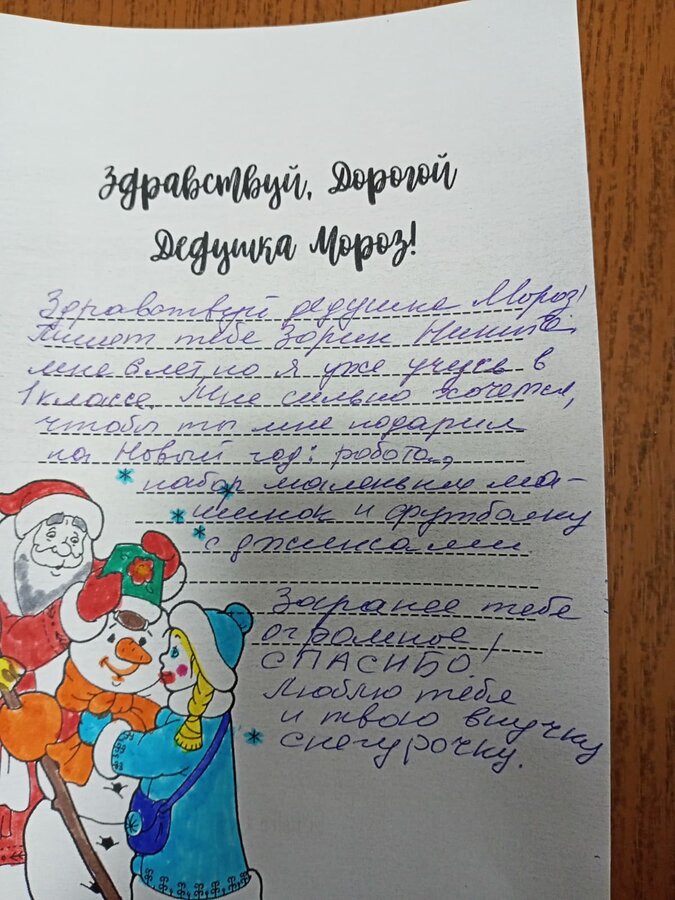 Здравствуй, Дорогой
Дедушка Мороз!
Здравствуй дедушка Мороз!
Пишет тебе Зорин Никита,
мне 6 лет, но я уже учусь в
1 классе. Мне сильно хочется,
чтобы ты мне подарил
на Новый год: робота,
набор маленьких ма-
шинок и футболку
с джинсами
Заранее тебе
огромное
СПАСИБО!
Люблю тебя
и твою внучку
снегурочку.